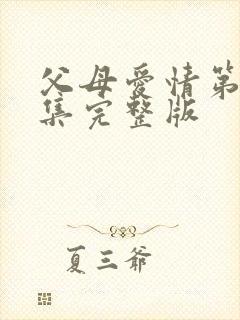 父母爱情第
集完整版
夏三爷